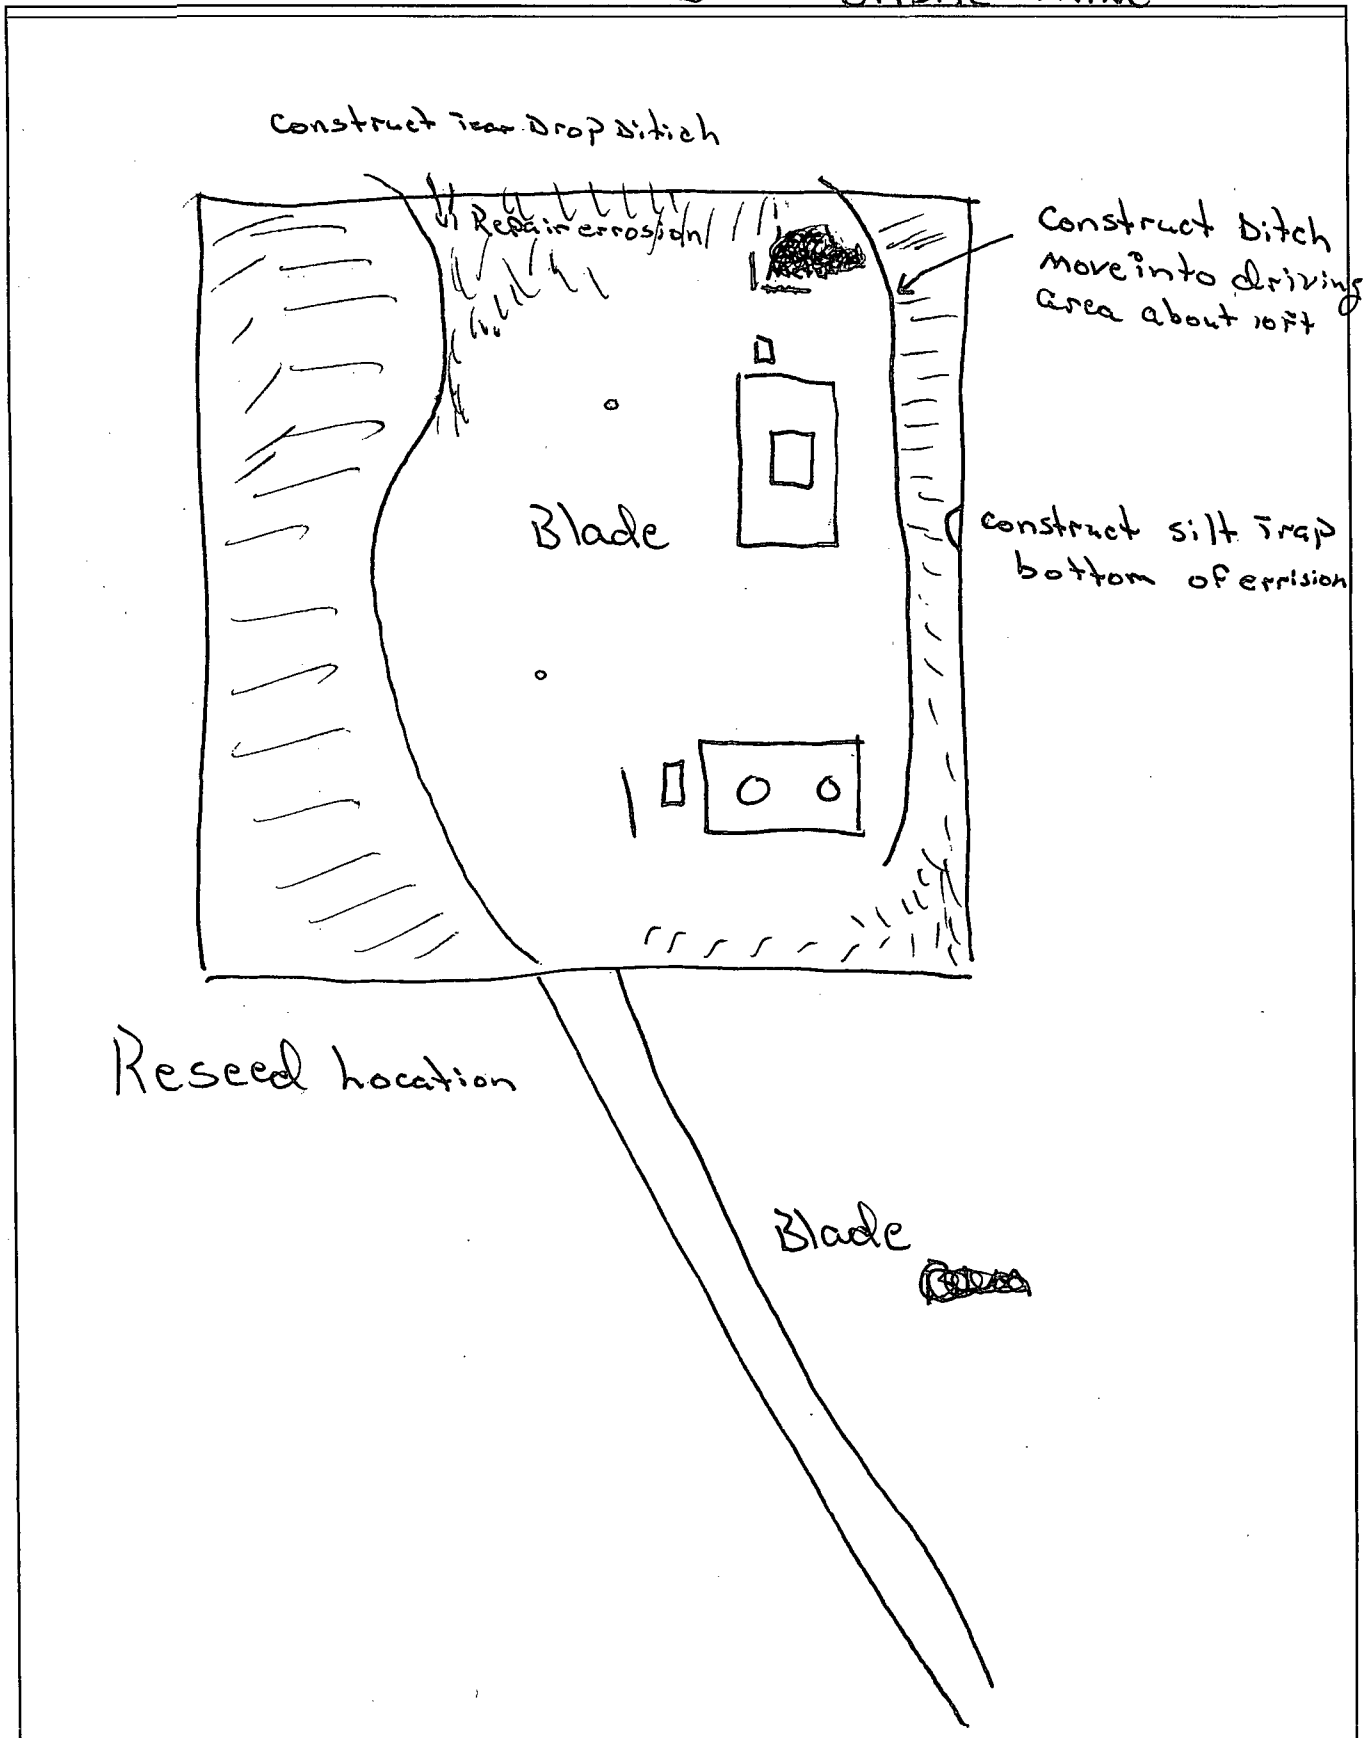 Construct Tear Drop Ditich
Repair errosion
Construct Ditch
move into driving
area about 10ft
Blade
construct silt Trap
bottom of errision
Reseed Location
Blade